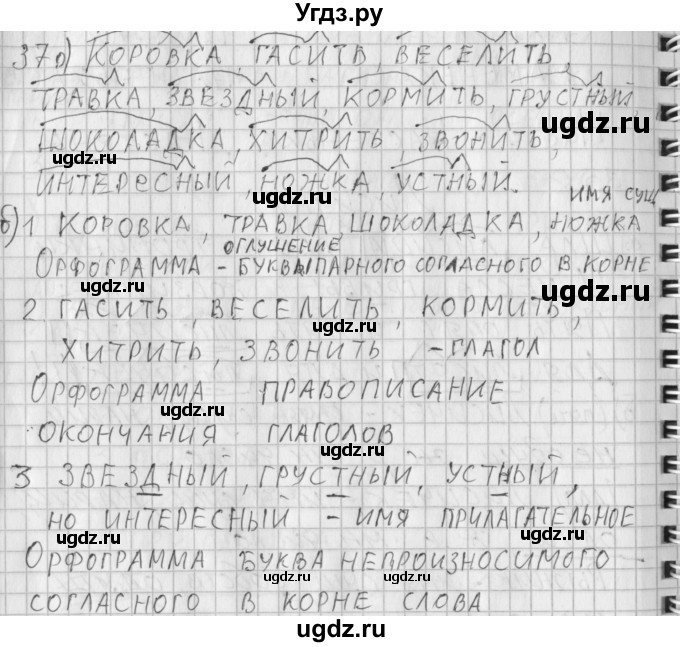 Угдз.ру
37а) КОРОВКА, ГАСИТЬ, ВЕСЕЛИТЬ,
ТРАВКА, ЗВЕЗДНЫЙ, КОРМИТЬ, ГРУСТНЫЙ,
ugdz.ru
ШОКОЛАДКА, ХИТРИТЬ, ЗВОНИТЬ,
ugdz.ru ugdz.ru
ИНТЕРЕСНЫЙ, НОЖКА, УСТНЫЙ.
ugdz.ru
ИМЯ СУЩ
б) 1 КОРОВКА, ТРАВКА, ШОКОЛАДКА, НОЖКА
ОГЛУШЕНИЕ
ОРФОГРАММА - БУКВЫ ПАРНОГО СОГЛАСНОГО В КОРНЕ
ugdz.ru
2 ГАСИТЬ, ВЕСЕЛИТЬ, КОРМИТЬ,
ugdz.ru
ХИТРИТЬ, ЗВОНИТЬ - ГЛАГОЛ
ОРФОГРАММА ПРАВОПИСАНИЕ
ugdz.ru
ОКОНЧАНИЯ ГЛАГОЛОВ
3 ЗВЕЗДНЫЙ, ГРУСТНЫЙ, УСТНЫЙ,
ugdz.ru ugdz.ru
НО ИНТЕРЕСНЫЙ - ИМЯ ПРИЛАГАТЕЛЬНОЕ
ОРФОГРАММА БУКВА НЕПРОИЗНОСИМОГО
ugdz.ru
СОГЛАСНОГО В КОРНЕ СЛОВА
ugdz.ru
ugdz.ru